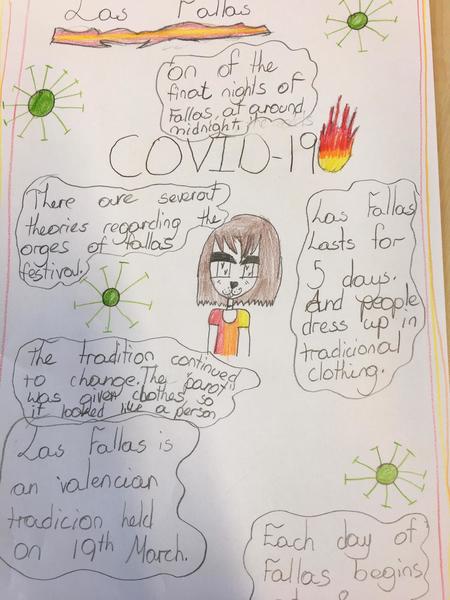 Las Fallas
on of the
final nights of
Fallas, at around,
midnight,
COVID-19
There are several
theories regarding the
orges of fallas
festival.
Las Fallas
Lasts for
5 days.
And people
dress up in
tradicional
clothing.
The tradition continued
to change. The "parot"
was given clothes, so
it looked like a person
Las Fallas is
an valencian
tradicion held
on 19th March.
Each day of
Fallas begins